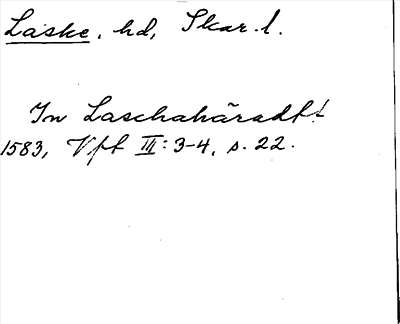 Laske, hd, Skar. l.
In Laschahäradh!
1583, Vft III: 3-4, s. 22.